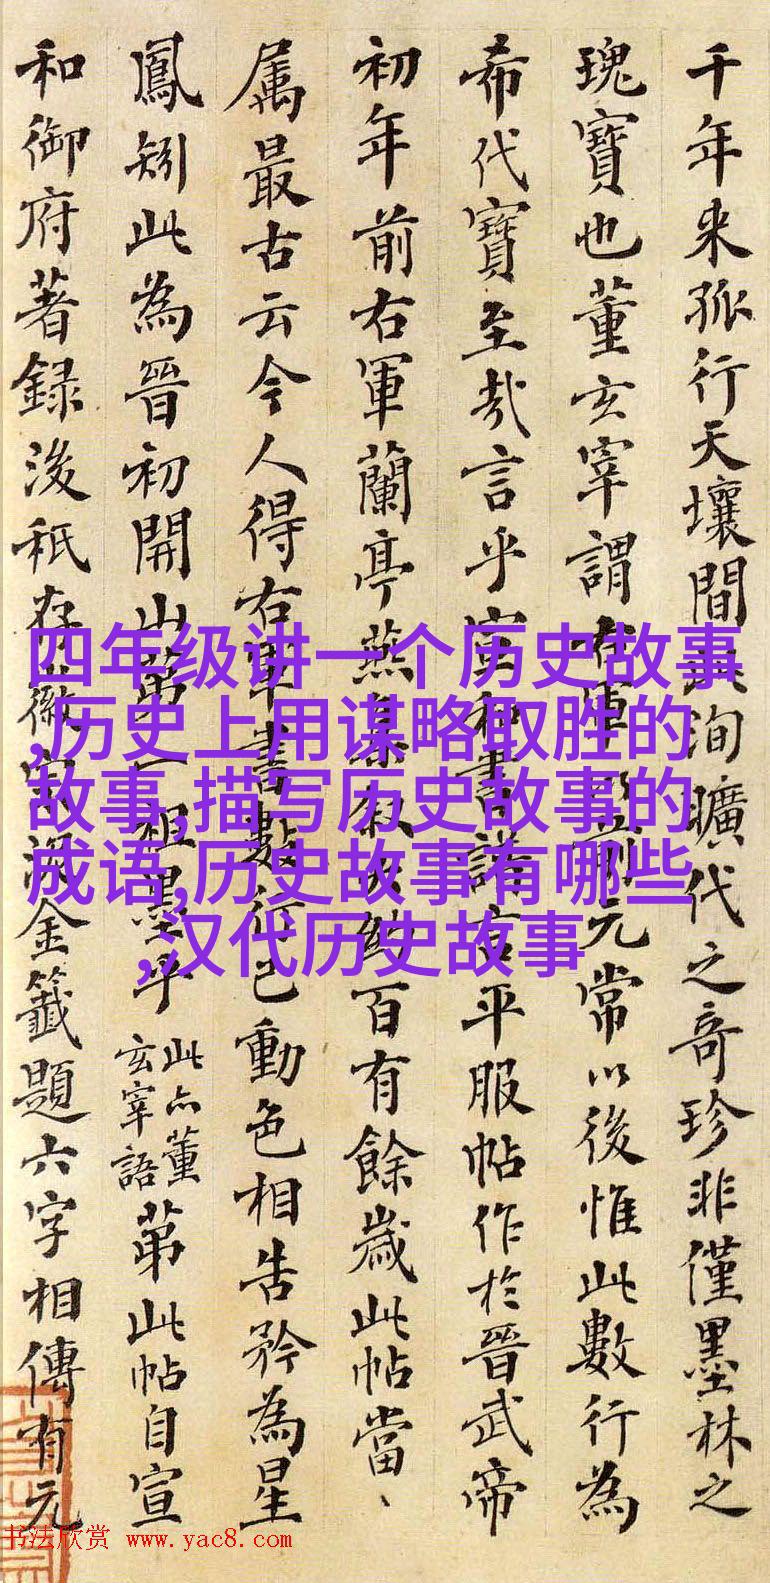 千年来孤行天壤間此洵曠代之奇珍非僅墨林之
瑰寶也董玄宰謂右軍以前元常以後惟此數行為
希代寶至哉言乎宣和書譜言平服帖作於晉武帝
初年前右軍蘭亭燕集敘約百有餘歲此帖當、
属最古云今人得右軍書數行已動色相告矜為星
鳳矧此為晉初開山第一祖墨乎此亦董玄宰語第此帖自宣
和御府著録後祇存徽宗泥金籤題六字相傳有元
四年级讲一个历史故事
,历史上用谋略取胜的
故事,描写历史故事的
成语,历史故事有哪些
,汉代历史故事
书法欣赏 www.yac8.com